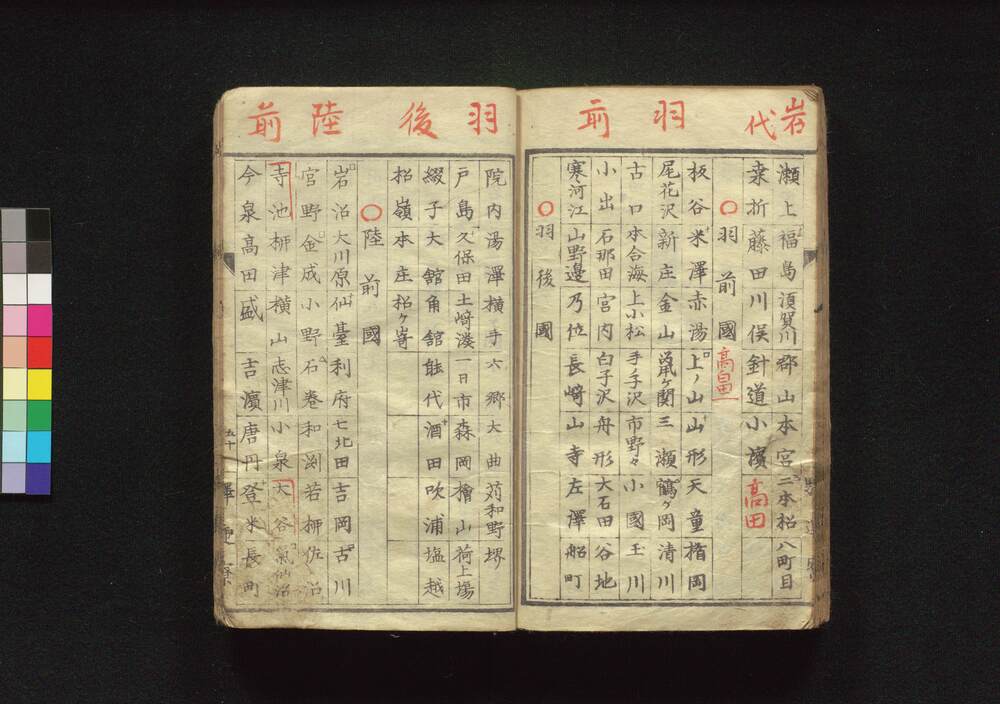 岩代
羽前
瀬上 福島 須賀川 郡山 本宮 二本松 八町目
桑折 藤田 川俣 針道 小濱 高田
○羽前國 高畠
板谷 米澤 赤湯 上ノ山 山形 天童 楯岡
尾花沢 新庄 金山 鼠ヶ関 三瀬 鶴ヶ岡 清川
古口 本合海 上小松 手ノ子沢 市野々 小國 玉川
小出 石那田 宮内 白子沢 舟形 大石田 谷地
寒河江 山野邊 乃位 長崎 山寺 左澤 船町
○羽後國
羽後
陸前
院内 湯澤 横手 六郷 大曲 苅和野 堺
戸島 久保田 土崎湊 一日市 森岡 檜山 荷上場
綴子 大舘 角舘 能代 酒田 吹浦 塩越
松嶺 本庄 松ヶ嵜
○陸前國
岩沼 大川原 仙臺 利府 七北田 吉岡 古川
宮野 金成 小野 石巻 和渕 若栁 佐沼
寺池 栁津 横山 志津川 小泉 大谷 氣仙沼
今泉 高田 盛 吉濱 唐丹 登米 長町
五十